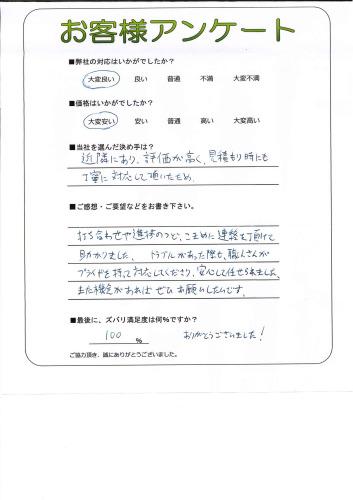 お客様アンケート
■弊社の対応はいかがでしたか?
大変良い 良い 普通 不満 大変不満
■価格はいかがでしたか?
大変安い 安い 普通 高い 大変高い
■当社を選んだ決め手は?
近隣にあり、評価が高く、見積もり時にも
丁寧に対応して頂いたため。
■ご感想・ご要望などをお書き下さい。
打ち合わせや進捗のつど、こまめに連絡を頂けて
助かりました。 トラブルがあった際も、職人さんが
プライドを持って対応してくださり、安心して任せられました。
また機会があればぜひお願いしたいです。
■最後に、ズバリ満足度は何%ですか?
100 % ありがとうございました!
ご協力頂き、誠にありがとうございました。